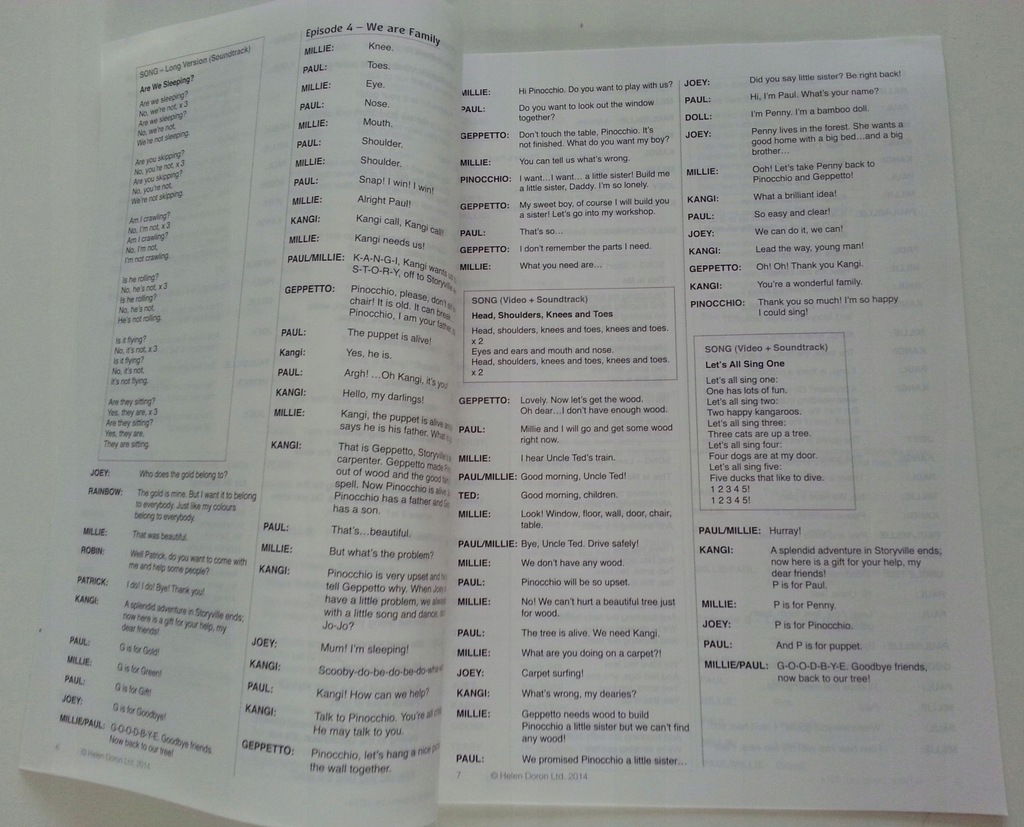 SONG – Long Version (Soundtrack)
Are We Sleeping?
Are we sleeping?
No, we're not, x 3
Are we sleeping?
No, we're not.
We're not sleeping.
Are you skipping?
No, you're not, x 3
Are you skipping?
No, you're not.
We're not skipping.
Am I crawling?
No, I'm not, x 3
Am I crawling?
No, I'm not.
I'm not crawling.
Is he rolling?
No, he's not, x 3
Is he rolling?
No, he's not.
He's not rolling.
Is it flying?
No, it's not, x 3
Is it flying?
No, it's not.
It's not flying.
Are they sitting?
Yes, they are, x 3
Are they sitting?
Yes, they are.
They are sitting.
JOEY: Who does the gold belong to?
RAINBOW: The gold is mine. But I want it to belong
to everybody. Just like my colours
belong to everybody.
MILLIE: That was beautiful.
ROBIN: Well Patrick, do you want to come with
me and help some people?
PATRICK: I do! I do! Bye! Thank you!
KANGI: A splendid adventure in Storyville ends;
now here is a gift for your help, my
dear friends!
PAUL: G is for Gold!
MILLIE: G is for Green!
PAUL: G is for Gift!
JOEY: G is for Goodbye!
MILLIE/PAUL: G-O-O-D-B-Y-E. Goodbye friends.
Now back to our tree!
6 © Helen Doron Ltd. 2014
Episode 4 – We are Family
MILLIE: Knee.
PAUL: Toes.
MILLIE: Eye.
PAUL: Nose.
MILLIE: Mouth.
PAUL: Shoulder.
MILLIE: Shoulder.
PAUL: Snap! I win! I win!
MILLIE: Alright Paul!
KANGI: Kangi call, Kangi call!
MILLIE: Kangi needs us!
PAUL/MILLIE: K-A-N-G-I, Kangi wants
S-T-O-R-Y, off to Storyville
GEPPETTO: Pinocchio, please, don't
chair! It is old. It can break
Pinocchio, I am your father
PAUL: The puppet is alive!
Kangi: Yes, he is.
PAUL: Argh! …Oh Kangi, it's you
KANGI: Hello, my darlings!
MILLIE: Kangi, the puppet is alive
says he is his father. What
KANGI: That is Geppetto, Storyville's
carpenter. Geppetto made
out of wood and the good
spell. Now Pinocchio is alive
Pinocchio has a father and
has a son.
PAUL: That's…beautiful.
MILLIE: But what's the problem?
KANGI: Pinocchio is very upset and
tell Geppetto why. When
have a little problem, we
with a little song and dance.
Jo-Jo?
JOEY: Mum! I'm sleeping!
KANGI: Scooby-do-be-do-be-do
PAUL: Kangi! How can we help?
KANGI: Talk to Pinocchio. You're all
He may talk to you.
GEPPETTO: Pinocchio, let's hang a nice
the wall together.
MILLIE: Hi Pinocchio. Do you want to play with us?
PAUL: Do you want to look out the window
together?
GEPPETTO: Don't touch the table, Pinocchio. It's
not finished. What do you want my boy?
MILLIE: You can tell us what's wrong.
PINOCCHIO: I want…I want… a little sister! Build me
a little sister, Daddy. I'm so lonely.
GEPPETTO: My sweet boy, of course I will build you
a sister! Let's go into my workshop.
PAUL: That's so…
GEPPETTO: I don't remember the parts I need.
MILLIE: What you need are…
SONG (Video + Soundtrack)
Head, Shoulders, Knees and Toes
Head, shoulders, knees and toes, knees and toes.
x 2
Eyes and ears and mouth and nose.
Head, shoulders, knees and toes, knees and toes.
x 2
GEPPETTO: Lovely. Now let's get the wood.
Oh dear…I don't have enough wood.
PAUL: Millie and I will go and get some wood
right now.
MILLIE: I hear Uncle Ted's train.
PAUL/MILLIE: Good morning, Uncle Ted!
TED: Good morning, children.
MILLIE: Look! Window, floor, wall, door, chair,
table.
PAUL/MILLIE: Bye, Uncle Ted. Drive safely!
MILLIE: We don't have any wood.
PAUL: Pinocchio will be so upset.
MILLIE: No! We can't hurt a beautiful tree just
for wood.
PAUL: The tree is alive. We need Kangi.
MILLIE: What are you doing on a carpet?!
JOEY: Carpet surfing!
KANGI: What's wrong, my dearies?
MILLIE: Geppetto needs wood to build
Pinocchio a little sister but we can't find
any wood!
PAUL: We promised Pinocchio a little sister…
7 © Helen Doron Ltd. 2014
JOEY: Did you say little sister? Be right back!
PAUL: Hi, I'm Paul. What's your name?
DOLL: I'm Penny. I'm a bamboo doll.
JOEY: Penny lives in the forest. She wants a
good home with a big bed…and a big
brother…
MILLIE: Ooh! Let's take Penny back to
Pinocchio and Geppetto!
KANGI: What a brilliant idea!
PAUL: So easy and clear!
JOEY: We can do it, we can!
KANGI: Lead the way, young man!
GEPPETTO: Oh! Oh! Thank you Kangi.
KANGI: You're a wonderful family.
PINOCCHIO: Thank you so much! I'm so happy
I could sing!
SONG (Video + Soundtrack)
Let's All Sing One
Let's all sing one:
One has lots of fun.
Let's all sing two:
Two happy kangaroos.
Let's all sing three:
Three cats are up a tree.
Let's all sing four:
Four dogs are at my door.
Let's all sing five:
Five ducks that like to dive.
1 2 3 4 5!
1 2 3 4 5!
PAUL/MILLIE: Hurray!
KANGI: A splendid adventure in Storyville ends;
now here is a gift for your help, my
dear friends!
P is for Paul.
MILLIE: P is for Penny.
JOEY: P is for Pinocchio.
PAUL: And P is for puppet.
MILLIE/PAUL: G-O-O-D-B-Y-E. Goodbye friends,
now back to our tree!